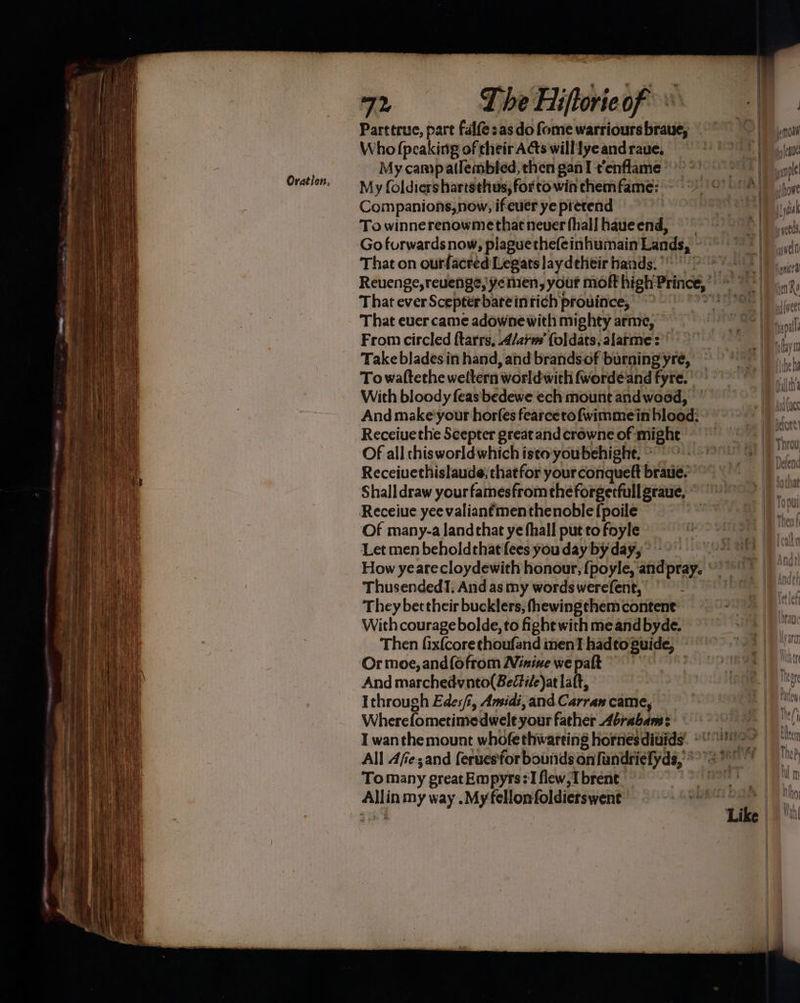 72 The Historie of
Part true, part false: as do some warriours braue,
Who speaking of their Acts will lye and raue.
My camp assembled, then gan I t'enflame
Oration,
My soldiers harts thus, for to win them fame:
Companions, now, if euer ye pretend
To winne renowme that neuer shall haue end,
Go forwards now, plague these inhumain Lands,
That on our sacred Legats layd their hands.
Reuenge, reuenge, ye men, your most high Prince,
That ever Scepter bare in rich prouince,
That euer came adowne with mighty arme,
From circled starrs, Alarm' soldats, alarme:
Take blades in hand, and brands of burning yre,
To waste the western world with sworde and fyre.
With bloody seas bedewe ech mount and wood,
And make your horses fearce to swimme in blood:
Receiue the Scepter great and crowne of might
Of all this world which is to you behight.
Receiue this laude, that for your conquest braue.
Shall draw your fames from the forgetfull graue,
Receiue yee valiant men the noble spoile
Of many-a land that ye shall put to foyle
Let men behold that sees you day by day,
How ye are cloydewith honour, spoyle, and pray.
Thus ended I. And as my words were sent,
They bet their bucklers, shewing them content
With courage bolde, to fight with me and byde.
Then six score thousand men I had to guide,
Or moe, and so from Niniue we past
And marched vnto (Bectile) at last,
I through Edessi, Amidi, and Carran came,
Where sometime dwelt your father Abraham:
I wan the mount whose thwarting hornes diuids
All Asie; and serues for bounds on sundrie syds,
To many great Empyrs: I slew, I brent
All in my way. My fellon soldiers went
Like